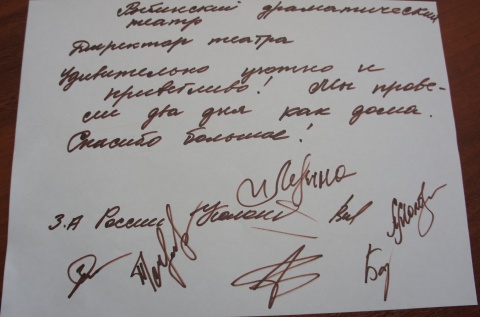 драматический
театр
Директор театра
Удивительно уютно и
приветливо! Мы прове-
ли два дня как дома.
Спасибо большое!
З.А России